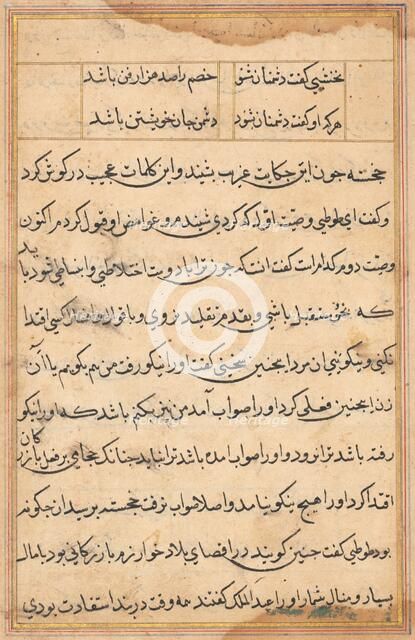 نخشبی گفت دشمنان نشنو خصم را صد هزار فن باشد
هر که او گفت دشمنان شنود دشمن جان خویشتن باشد
خجسته چون این حکایت غریب بشنید و این کلمات عجیب در گوش کرد
و گفت ای طوطی وصیت اول که کردی شنیدم و غوامض او قبول کردم اکنون
وصیت دوم کدام است گفت آنست که چون ترا با دوست اختلاطی و انبساطی شود باید
که بخود مستقبل باشی و بقدم تقلید نروی و باغوا و اکسی اقتدا
نکنی و نگوئی آن مرد اینچنین سخنی گفت او را نیکو رفت من هم بگویم یا آن
زن اینچنین فعلی کرد او را صواب آمد من نیز بکنم باشد که او را نیکو
رفته باشد ترا نرود و او را صواب آمده باشد ترا نیاید چنانک حجامی بر فعل بازرگان
اقتدا کرد او را هیچ نیکو نیامد و اصلا صواب نرفت خجسته پرسید آن چگونه
بود طوطی گفت چنین گویند در اقصای بلاد خوارزم بازرگانی بود با مال
بسیار و منال بیشمار او را عبد الملک گفتند همه وقت در بند استفادت بودی